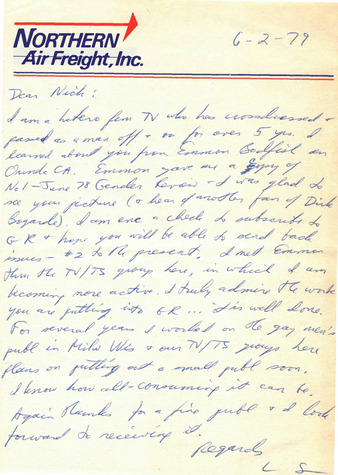 NORTHERN
Air Freight, Inc.
6-2-79
Dear Nick:
I am a hetero fem TV who has crossdressed &
passed as a man off & on for over 5 yrs. I
learned about you from Emmon Bodfish in
Orinda CA. Emmon gave me a copy of
No.1-June 78 Gender Review & I was glad to
see your picture (& hear of another fan of Dirk
Bogarde). I am enc a check to subscribe to
GR & hope you will be able to send back
issues - #2 to the present. I met Emmon
thru the TV/TS group here, in which I am
becoming more active. I truly admire the work
you are putting into GR... it is well done.
For several years I worked on the gay men's
publ in Milw Wis & our TV/TS group here
plans on putting out a small publ soon.
I know how all-consuming it can be.
Again thanks for a fine publ & I look
forward to receiving it.
Regards
L S